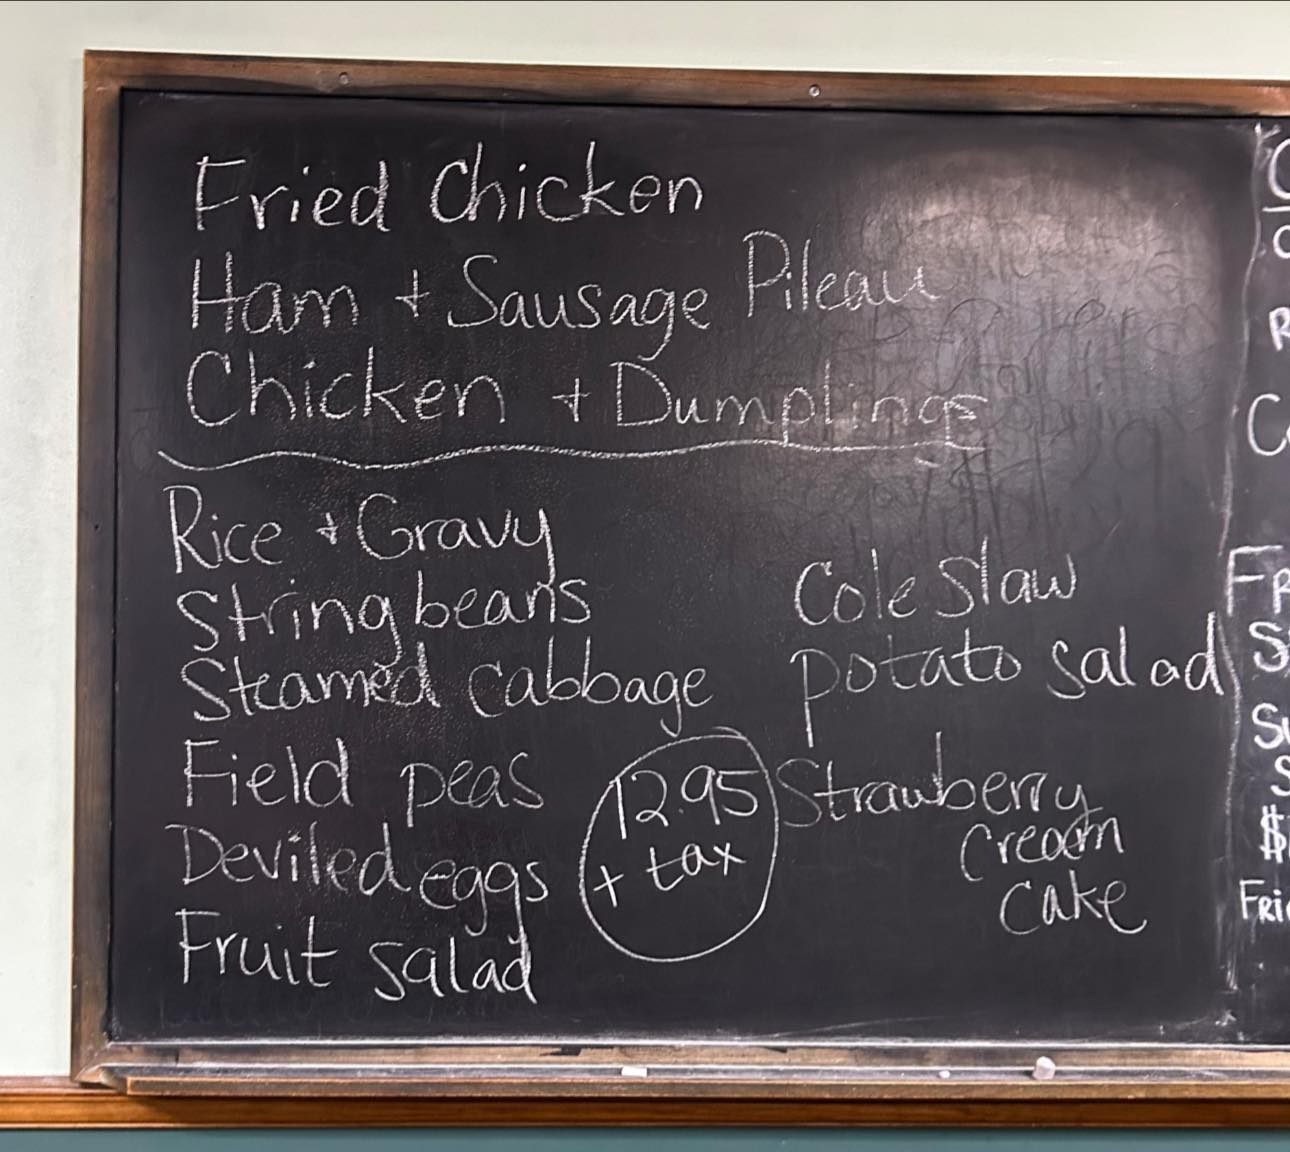 Fried Chicken
Ham + Sausage Pileau
Chicken + Dumplings
Rice + Gravy
String beans
Steamed cabbage
Field peas
Deviled eggs
Fruit salad
12.95
+ tax
Cole Slaw
potato salad
Strawberry
cream
cake
$